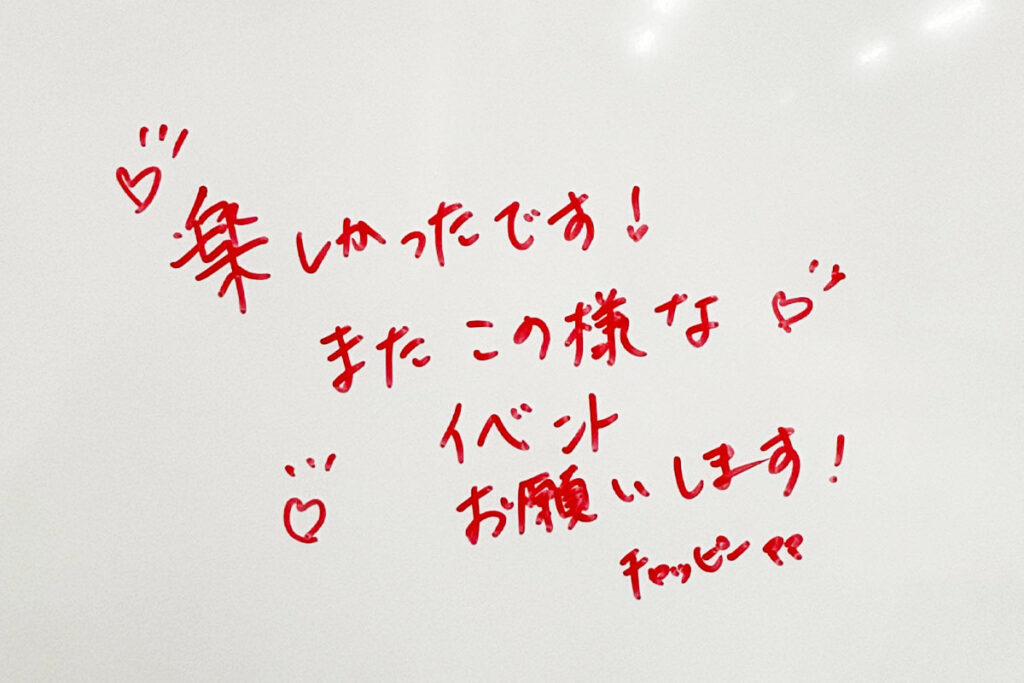 楽しかったです!
またこの様な
イベント
お願いします!
チャッピーママ